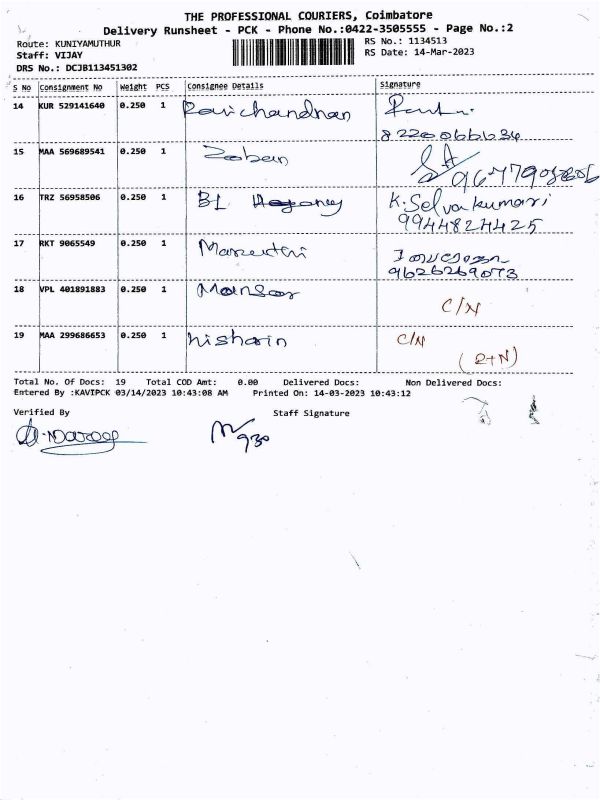 THE PROFESSIONAL COURIERS, Coimbatore
Delivery Runsheet - PCK - Phone No.:0422-3505555 - Page No.:2
Route: KUNIYAMUTHUR
RS No.: 1134513
Staff: VIJAY
RS Date: 14-Mar-2023
DRS No.: DCJB113451302
S No Consignment No Weight PCS Consignee Details Signature
14 KUR 529141640 0.250 1 Ravichandran
8220066634
15 MAA 569689541 0.250 1 Zoban
16 TRZ 56958506 0.250 1 BL K.Selvakumari
9944824425
17 RKT 9065549 0.250 1
9626269073
18 VPL 401891883 0.250 1 Mansor C/N
19 MAA 299686653 0.250 1 nishain C/N
(2+N)
Total No. Of Docs: 19 Total COD Amt: 0.00 Delivered Docs: Non Delivered Docs:
Entered By :KAVIPCK 03/14/2023 10:43:08 AM Printed On: 14-03-2023 10:43:12
Verified By Staff Signature
930